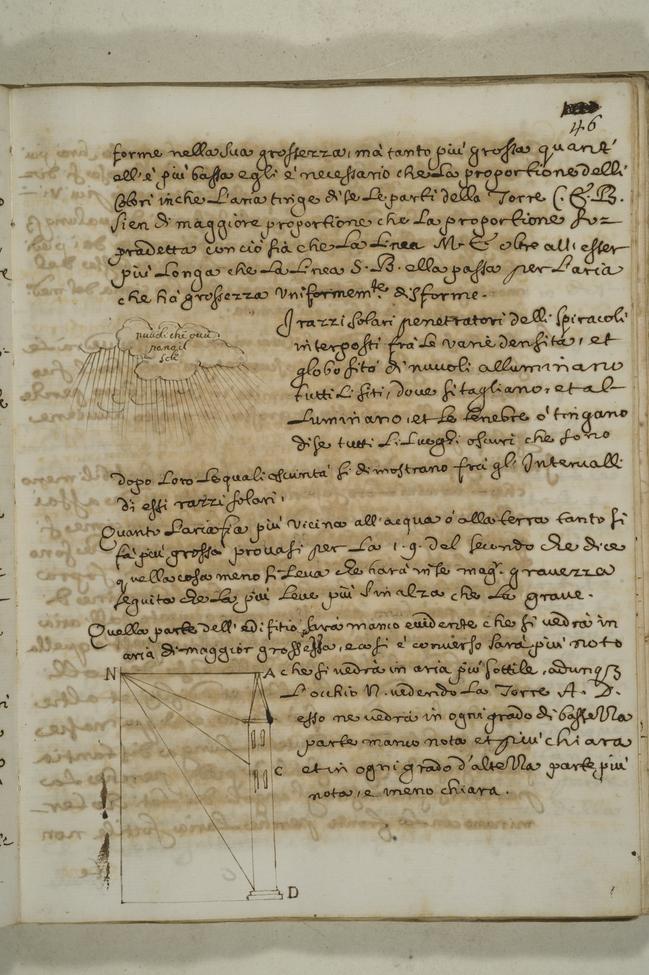 46
forme nella sua grossezza, mà tanto più grossa quant'
ell'è più bassa egli è necessario che la proportione delli
colori in che l'aria tinge di se le parti della Torre C. E. B.
sien di maggiore proportione che la proportione sop=
pradetta conciò sia che la linea M. E. oltre all'esser
più longa che la linea S. B. ella passa per l'aria
che hà grossezza uniformem.te disforme.
nuuoli che
sole
I razzi solari penetratori delli spiracoli
interposti frà le varie densità, et
globosità di nuuoli alluminano
tutti li siti, dove si tagliano, et al=
luminano, et le tenebre ò tingano
di se tutti li luoghi oscuri che sono
dopo loro le quali oscurità si dimostrano frà gl'Intervalli
di essi razzi solari.
Quanto l'aria sia più vicina all'acqua ò alla terra tanto si
fà più grossa provasi per la 1.9. del secondo che dice
quella cosa meno si leva che harà in se mag.r gravezza
seguita che la più leve più s'inalza che la grave.
Quella parte dell'edifitio sarà manco evidente che si vedrà in
aria di maggior grossezza, e così è converso sarà più noto
N A che si vedrà in aria più sottile, adunq3
L'occhio N. vedendo la Torre A. D.
esso ne vedrà in ogni grado di bassezza
parte manco nota et più chiara
C et in ogni grado d'altezza parte più
nota, e meno chiara.
D